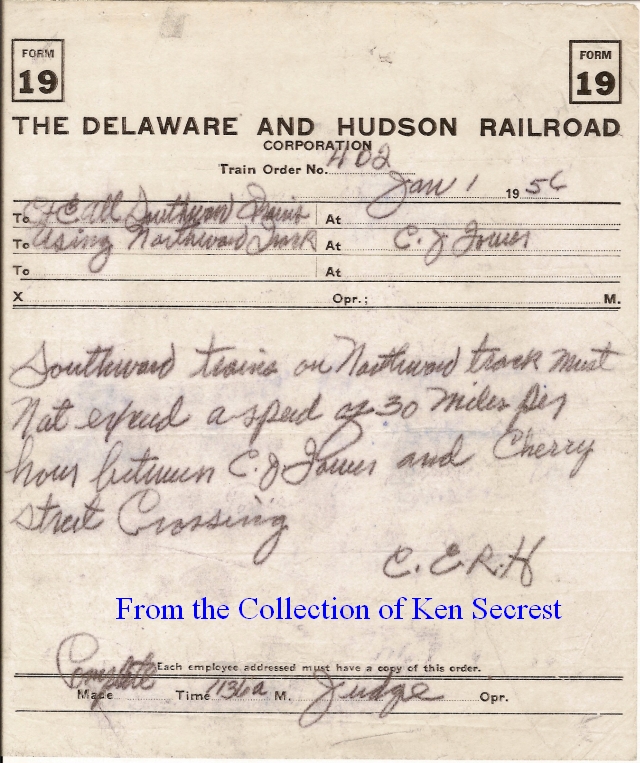 FORM 19 FORM 19
THE DELAWARE AND HUDSON RAILROAD
CORPORATION
Train Order No. 402
Jan 1 1956
To C&E All Southward Trains At
To Using Northward Track At C. J. Tower
To At
X Opr.; M.
Southward trains on Northward track must
Not exceed a speed of 30 Miles per
hour between C. J. Tower and Cherry
street Crossing
C. E. R. H
From the Collection of Ken Secrest
Each employee addressed must have a copy of this order.
Complete
Made Time 1136a M. Judge Opr.